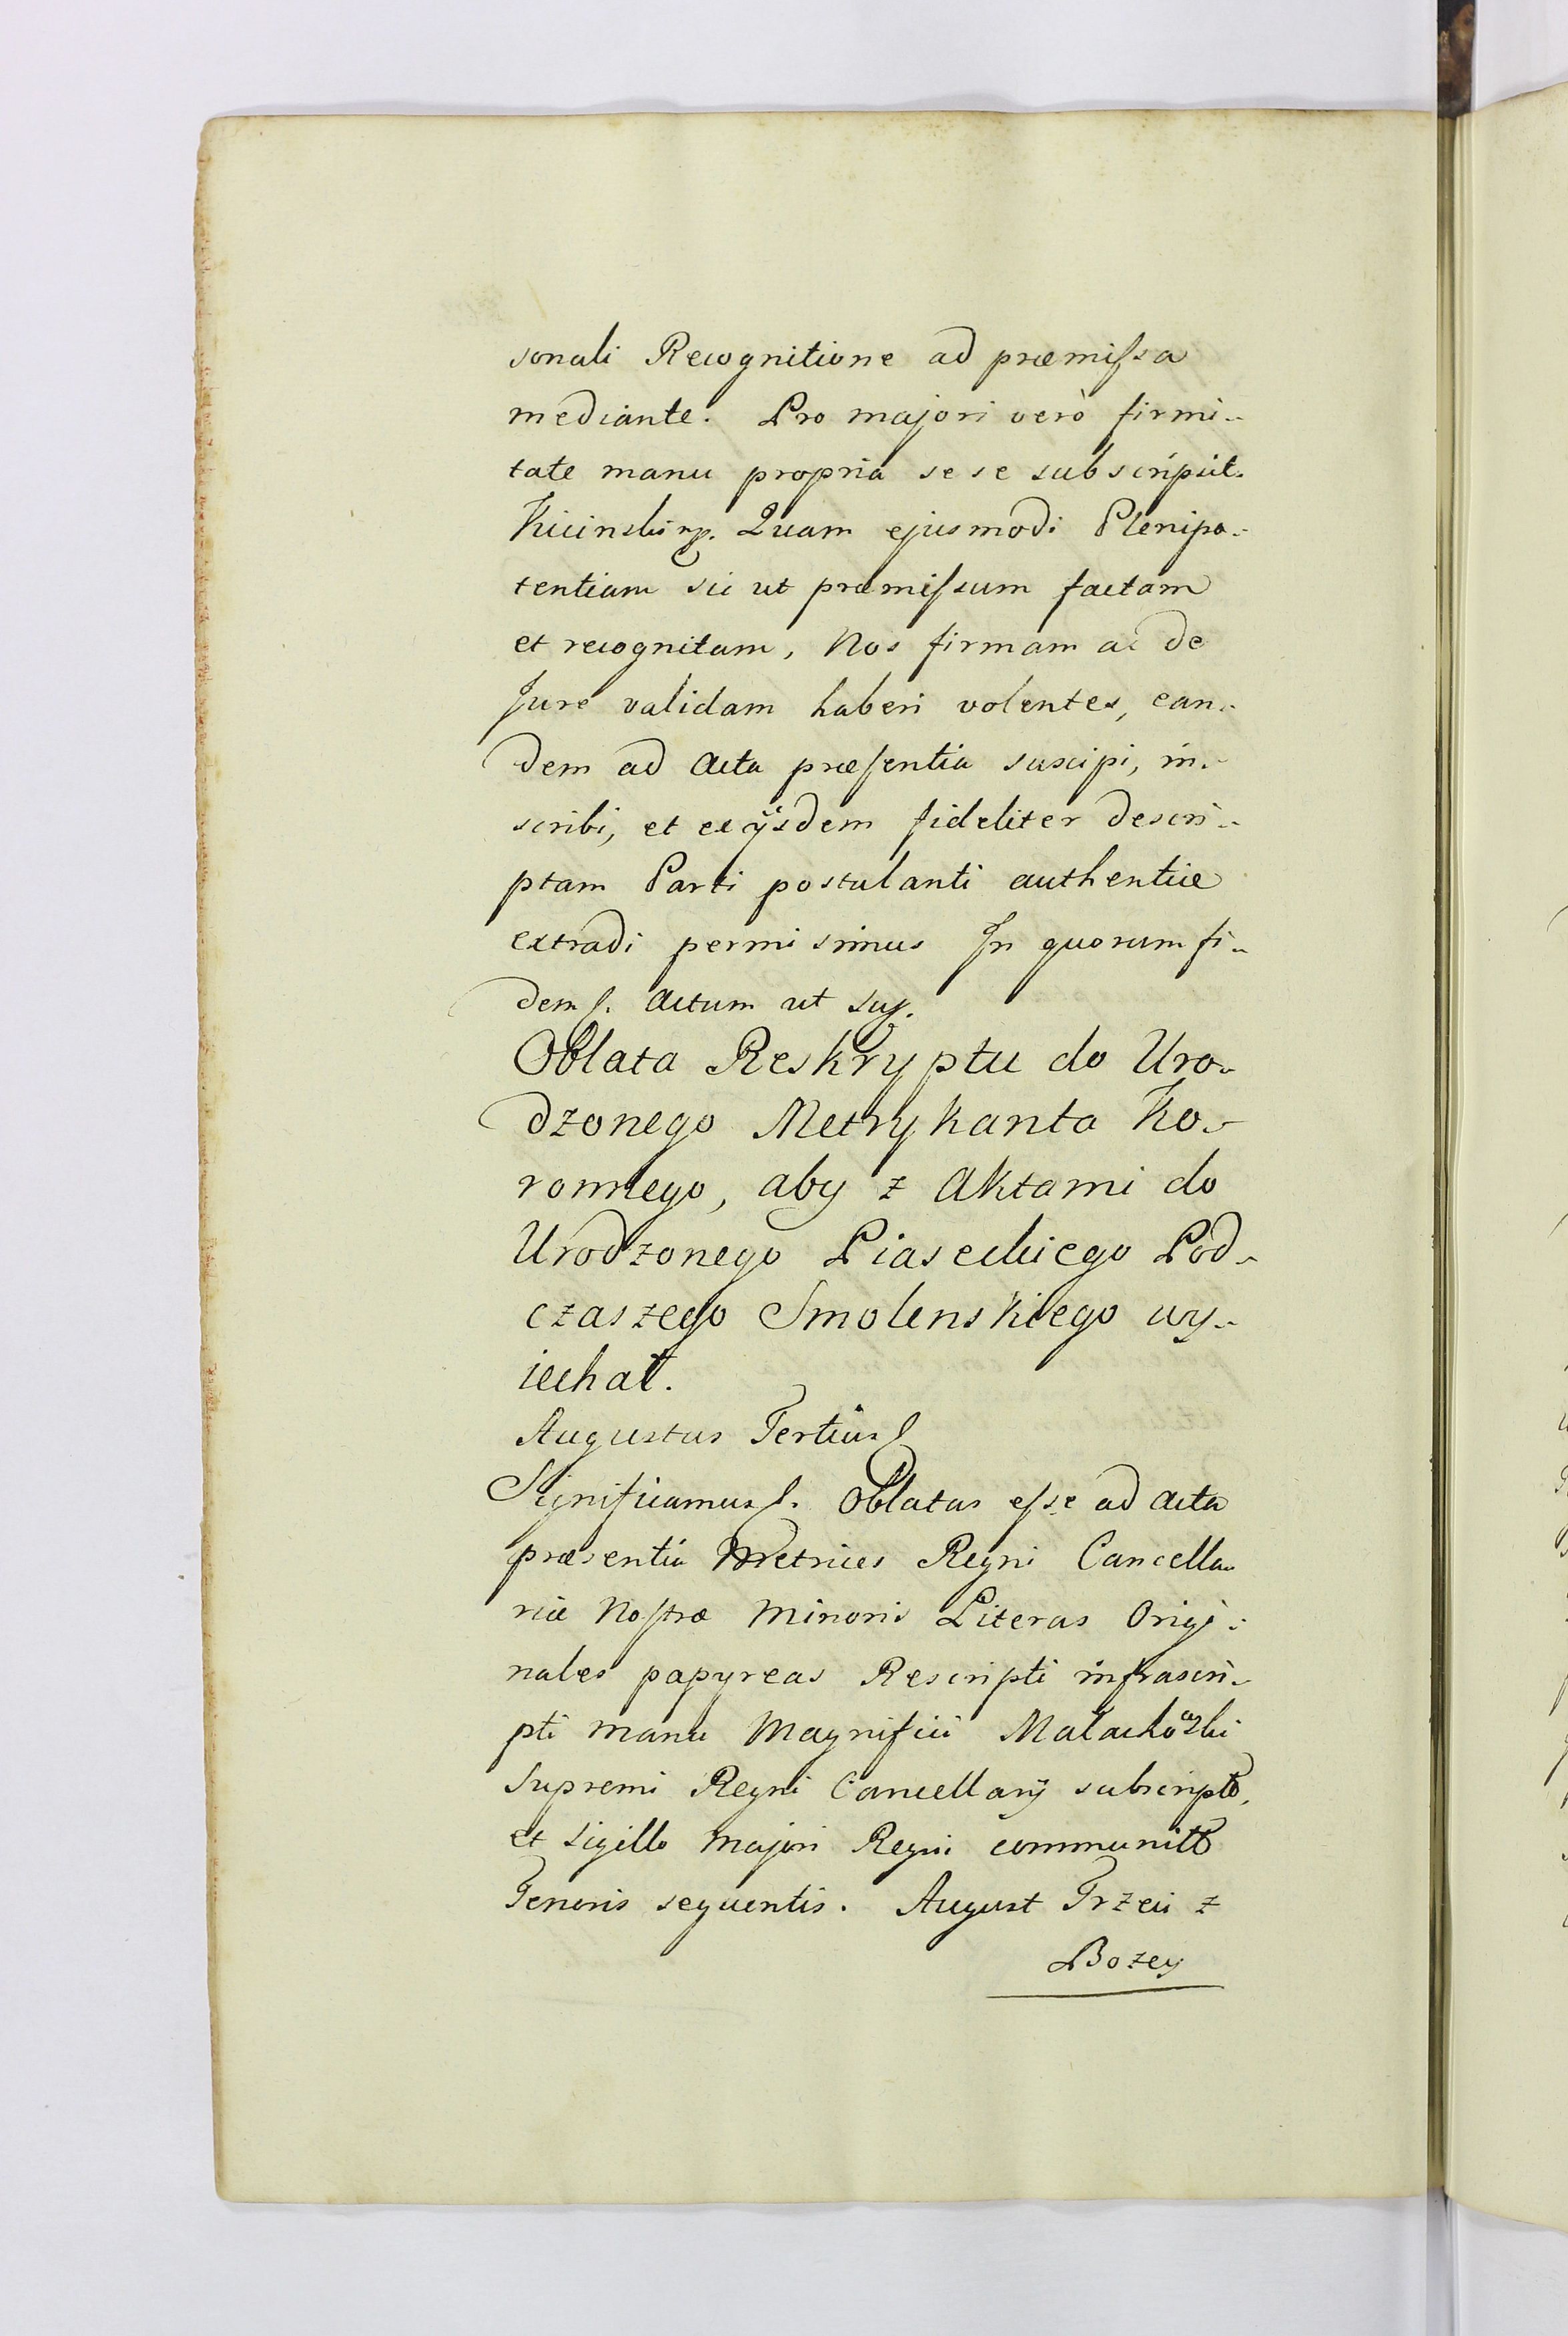 sonali Recognitione ad præmissa
mediante. Pro majori verò firmi-
tate manu propria sese subscripsit.
Kicinski mp. Quam ejusmodi Plenipo-
tentiam sic ut præmissum factam
et recognitam, Nos firmam ac de
Jure validam haberi volentes, ean-
dem ad Acta præsentia suscipi, in-
scribi, et ex ijsdem fideliter descri-
ptam Parti postulanti authentice
extradi permisimus In quorum fi-
dem &. Actum ut sup.
Oblata Reskryptu do Uro-
dzonego Metrykanta Ko-
ronnego, aby z Aktami do
Urodzonego Piaseckiego Pod-
czaszego Smolenskiego wy-
iechał.
Augustus Tertius &
Significamus &. Oblatas esse ad Acta
præsentia Metrices Regni Cancella-
riæ Nostræ Minoris Literas Origi-
nales papyreas Rescripti infrascri-
pti manu Magnifici Małachowski
Supremi Regni Cancellarij subscripto,
et Sigillo Majori Regni communito
Tenoris sequentis. August Trzeci z
Bozey